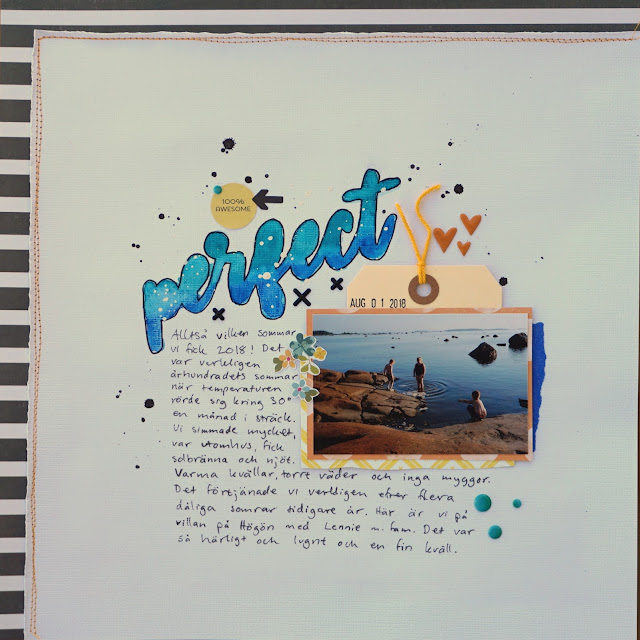 100%
AWESOME
perfect
AUG 01 2018
Alltså vilken sommar
vi fick 2018! Det
var verkligen
århundradets sommar
när temperaturen
rörde sig kring 30°
en månad i sträck.
Vi simmade mycket,
var utomhus, fick
solbränna och njöt.
Varma kvällar, torrt väder och inga myggor.
Det förtjänade vi verkligen efter flera
dåliga somrar tidigare år. Här är vi på
villan på Högön med Lennie m. fam. Det var
så härligt och lugnt och en fin kväll.